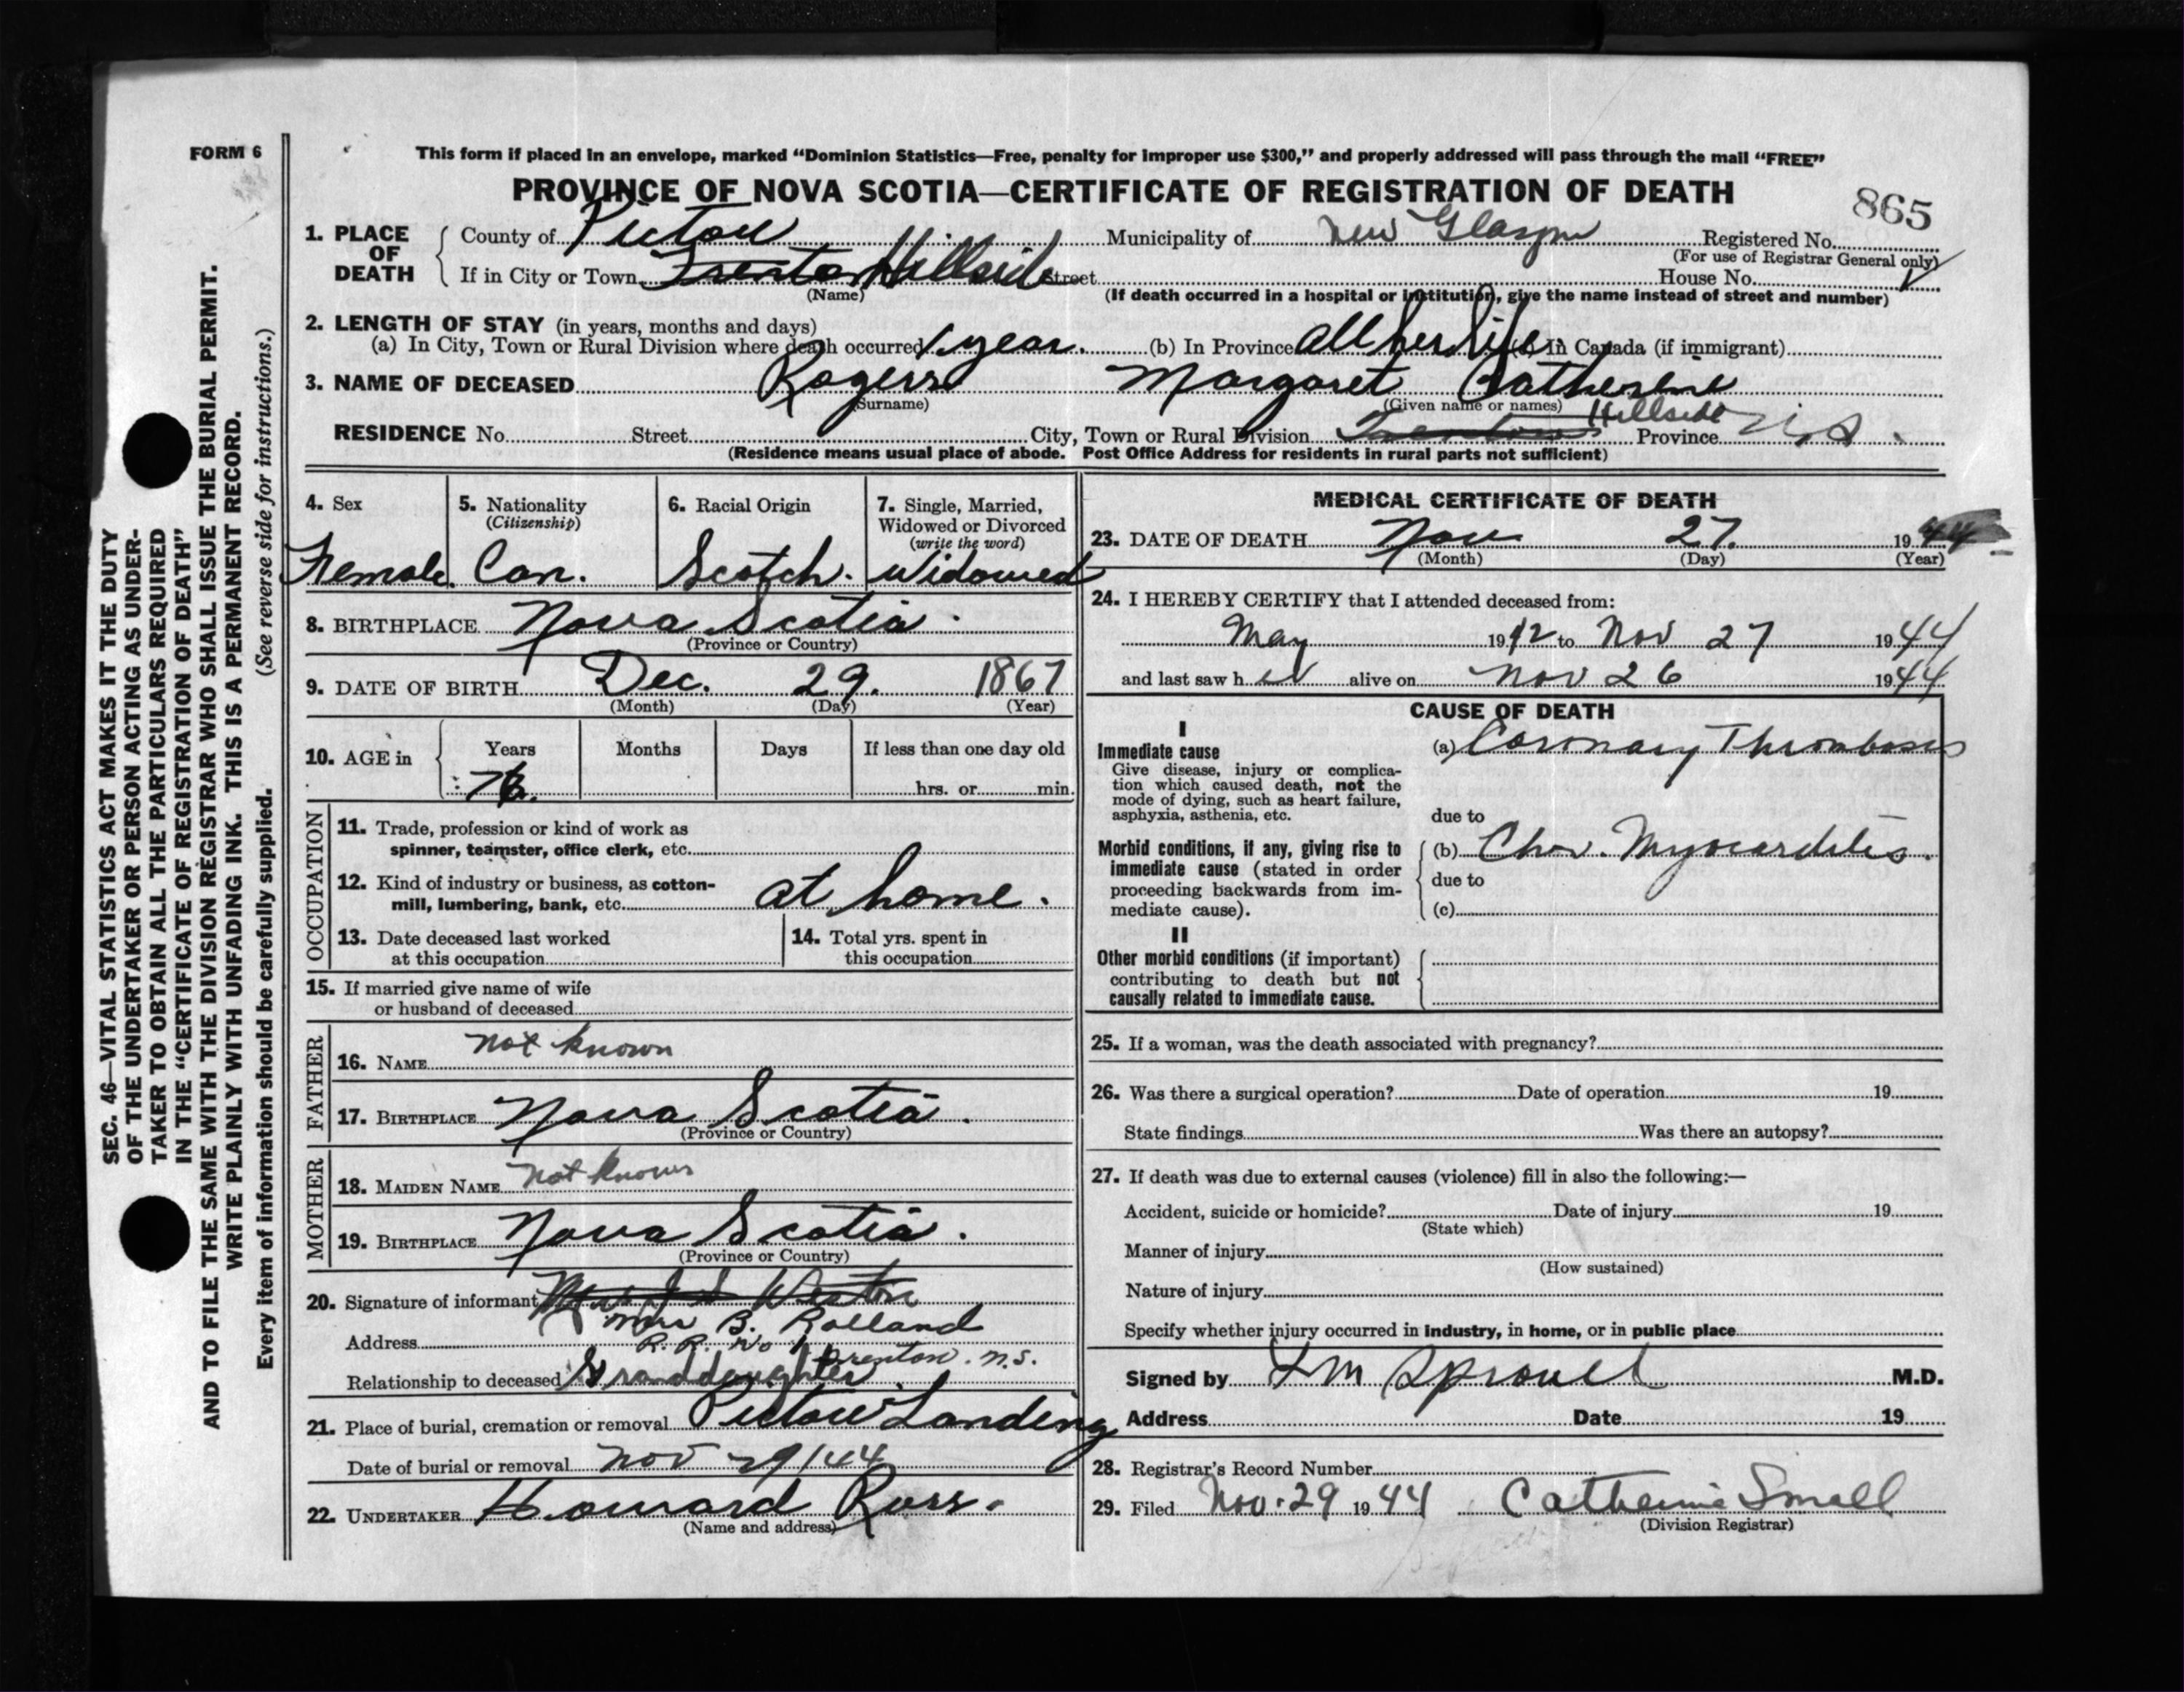 FORM 6
This form if placed in an envelope, marked “Dominion Statistics—Free, penalty for improper use $300,” and properly addressed will pass through the mail “FREE”
PROVINCE OF NOVA SCOTIA—CERTIFICATE OF REGISTRATION OF DEATH
865
1. PLACE OF DEATH
County of Pictou Municipality of New Glasgow Registered No.
(For use of Registrar General only)
If in City or Town Trenton Hillside Street House No.
(Name)
(If death occurred in a hospital or institution, give the name instead of street and number)
2. LENGTH OF STAY (in years, months and days)
(a) In City, Town or Rural Division where death occurred 1 year. (b) In Province all her life. (c) In Canada (if immigrant)
3. NAME OF DECEASED Rogers Margaret Catherine
(Surname) (Given name or names)
RESIDENCE No. Street City, Town or Rural Division Trenton Hillside Province N.S.
(Residence means usual place of abode. Post Office Address for residents in rural parts not sufficient)
4. Sex
Female.
5. Nationality
(Citizenship)
Can.
6. Racial Origin
Scotch.
7. Single, Married,
Widowed or Divorced
(write the word)
Widowed
8. BIRTHPLACE Nova Scotia.
(Province or Country)
9. DATE OF BIRTH Dec. 29. 1867
(Month) (Day) (Year)
10. AGE in Years Months Days If less than one day old
76. hrs. or min.
OCCUPATION
11. Trade, profession or kind of work as
spinner, teamster, office clerk, etc.
12. Kind of industry or business, as cotton-
mill, lumbering, bank, etc. at home.
13. Date deceased last worked
at this occupation
14. Total yrs. spent in
this occupation
15. If married give name of wife
or husband of deceased
FATHER
16. NAME not known
17. BIRTHPLACE Nova Scotia.
(Province or Country)
MOTHER
18. MAIDEN NAME Not known
19. BIRTHPLACE Nova Scotia.
(Province or Country)
20. Signature of informant Weston
Mrs B. Rolland
Address R. R. No 1
Trenton. N.S.
Relationship to deceased Granddaughter
21. Place of burial, cremation or removal Pictou Landing
Date of burial or removal Nov 29/44
22. UNDERTAKER Howard Ross.
(Name and address)
MEDICAL CERTIFICATE OF DEATH
23. DATE OF DEATH Nov 27. 1944
(Month) (Day) (Year)
24. I HEREBY CERTIFY that I attended deceased from:
May 1942 to Nov 27 1944
and last saw her alive on Nov 26 1944
CAUSE OF DEATH
I
Immediate cause
Give disease, injury or complica-
tion which caused death, not the
mode of dying, such as heart failure,
asphyxia, asthenia, etc.
(a) Coronary Thrombosis
due to
Morbid conditions, if any, giving rise to
immediate cause (stated in order
proceeding backwards from im-
mediate cause).
(b) Chr. Myocarditis.
due to
(c)
II
Other morbid conditions (if important)
contributing to death but not
causally related to immediate cause.
25. If a woman, was the death associated with pregnancy?
26. Was there a surgical operation? Date of operation 19
State findings Was there an autopsy?
27. If death was due to external causes (violence) fill in also the following:—
Accident, suicide or homicide? Date of injury 19
(State which)
Manner of injury
(How sustained)
Nature of injury
Specify whether injury occurred in industry, in home, or in public place
Signed by Sproull M.D.
Address Date 19
28. Registrar's Record Number
29. Filed Nov. 29 1944 Catherine Small
(Division Registrar)
SEC. 46—VITAL STATISTICS ACT MAKES IT THE DUTY
OF THE UNDERTAKER OR PERSON ACTING AS UNDER-
TAKER TO OBTAIN ALL THE PARTICULARS REQUIRED
IN THE “CERTIFICATE OF REGISTRATION OF DEATH”
AND TO FILE THE SAME WITH THE DIVISION REGISTRAR WHO SHALL ISSUE THE BURIAL PERMIT.
WRITE PLAINLY WITH UNFADING INK. THIS IS A PERMANENT RECORD.
Every item of information should be carefully supplied. (See reverse side for instructions.)